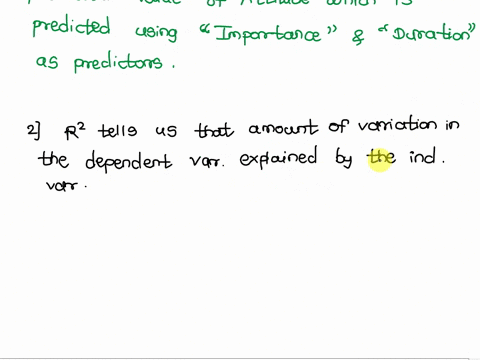 value of Attitude which is
predicted using "Importance" & "Duration"
as predictors.
2] R² tells us that amount of variation in
the dependent var. explained by the ind.
var.